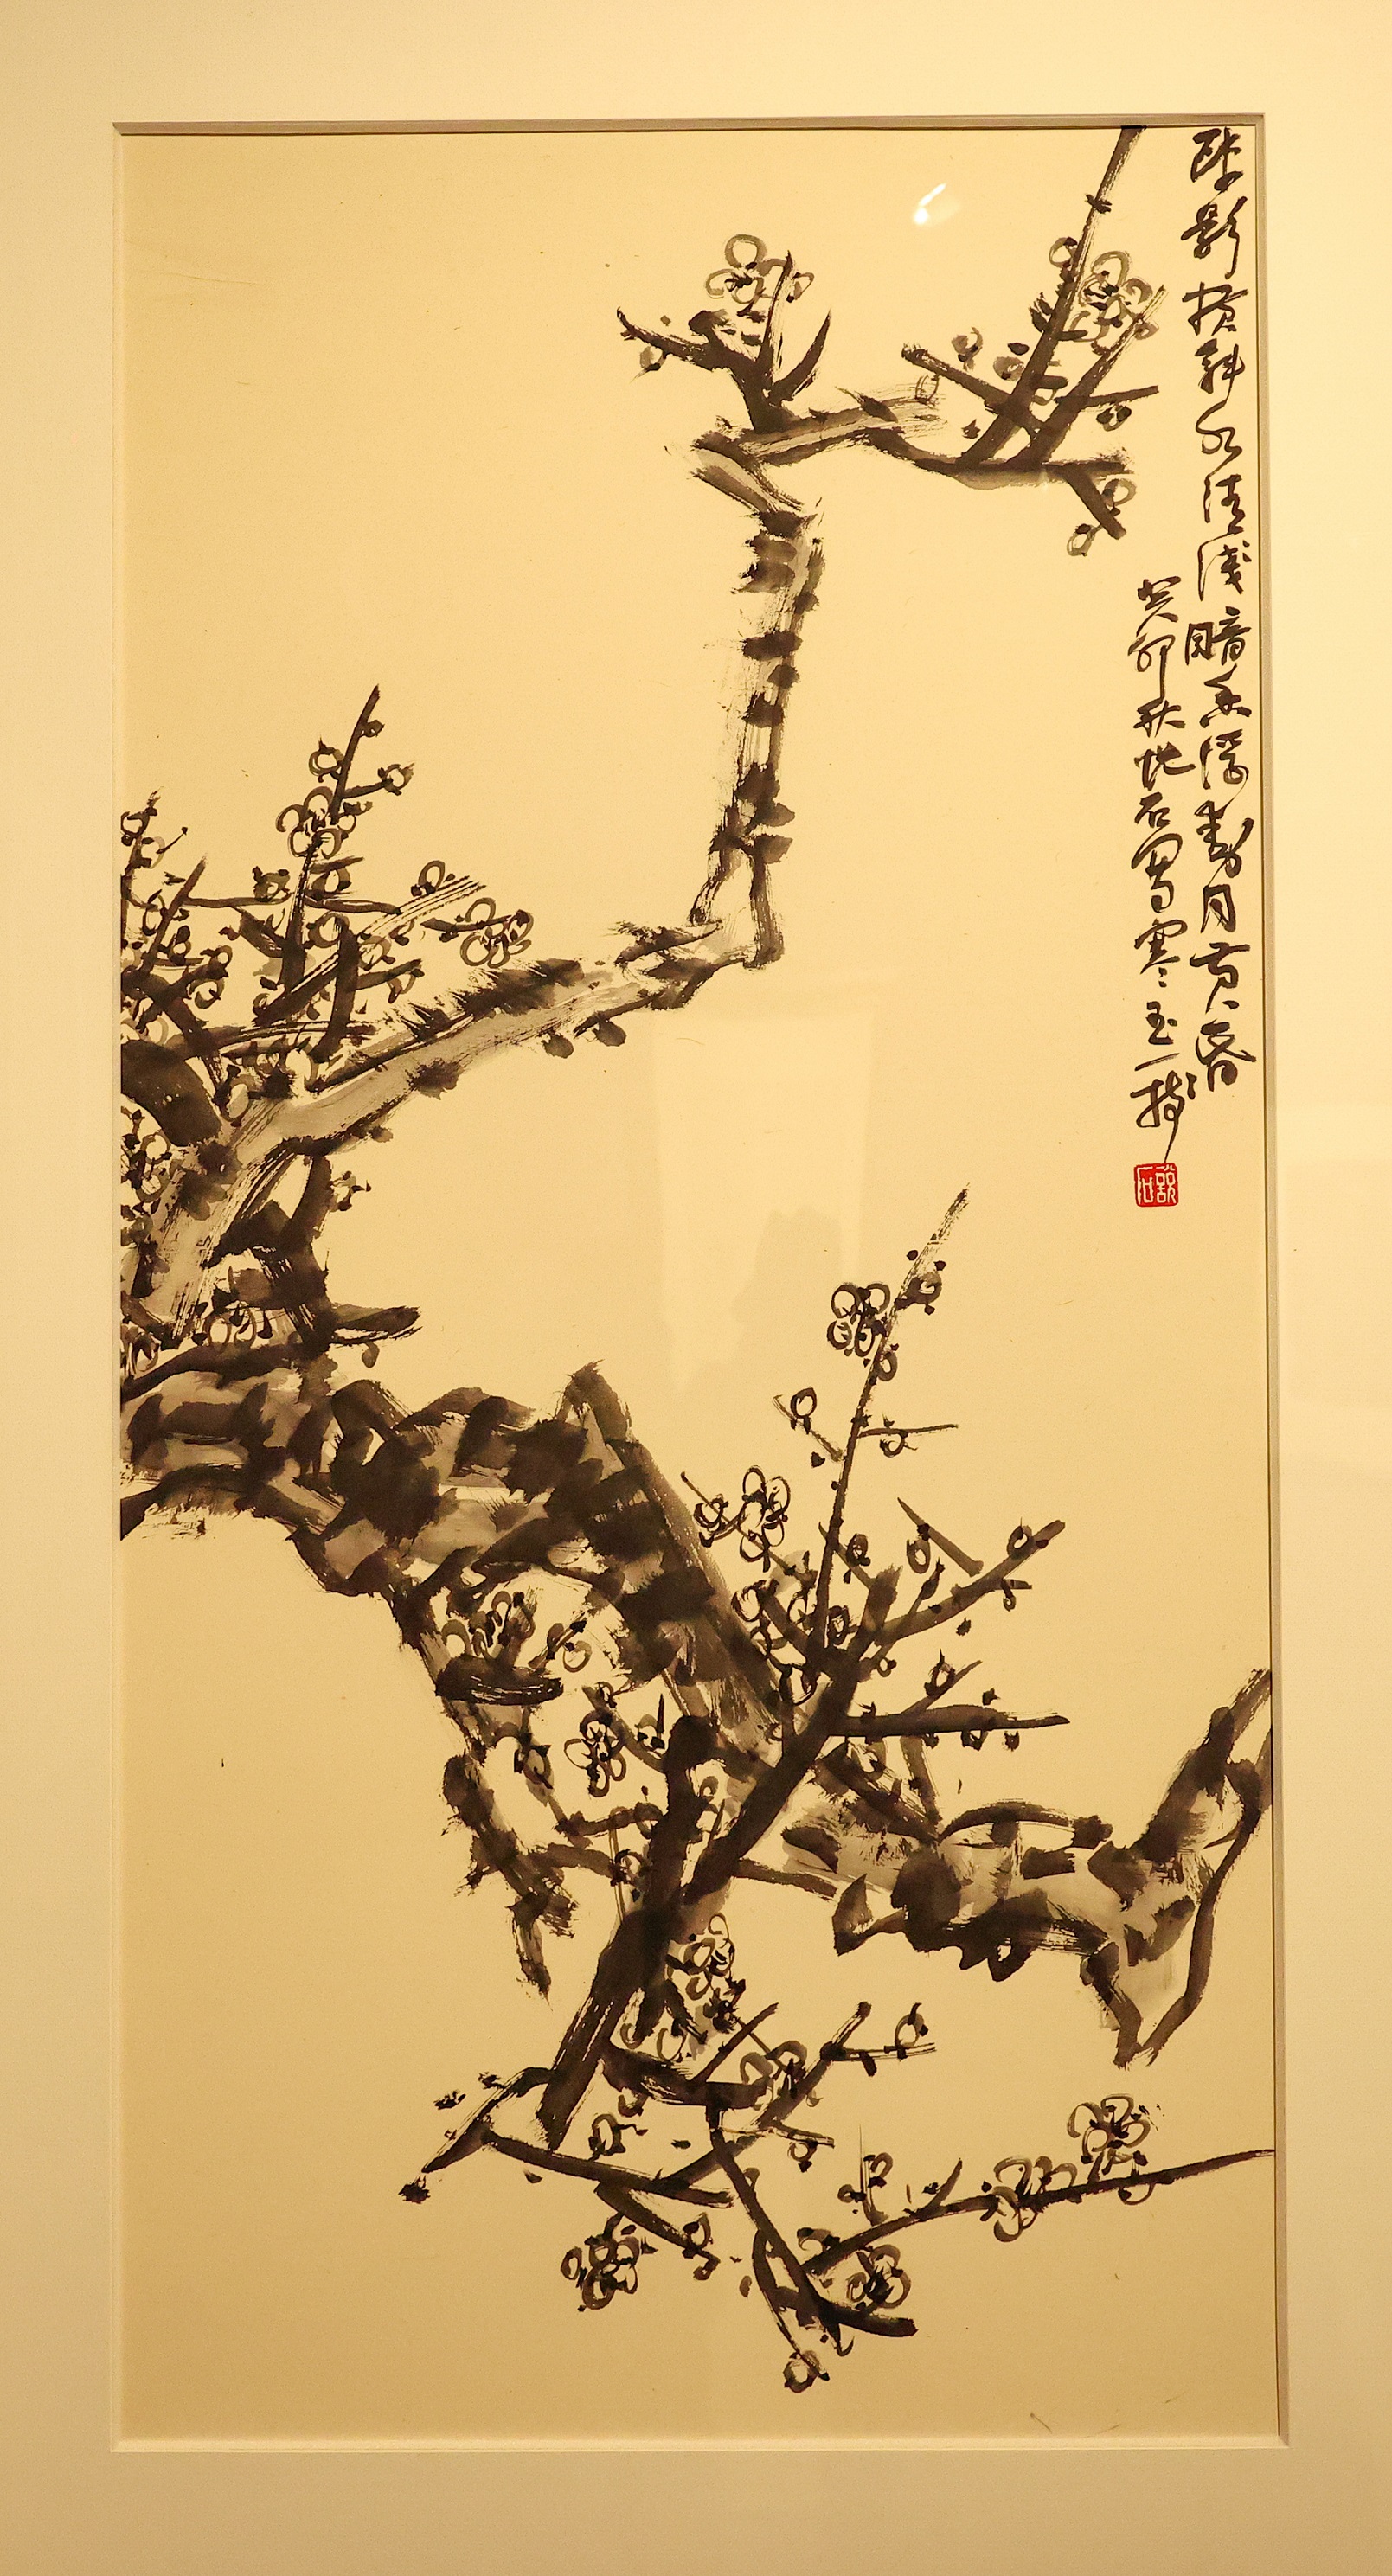 疏影横斜水清浅暗香浮动月黄昏
癸卯秋说石写寒玉一枝
說石